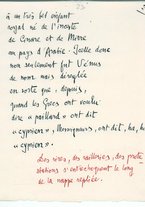 à un très bel enfant
royal né de l'inceste
de Cinyre et de Myrrhe
en pays d'Arabie. Quelle donc
non seulement fut Vénus
de nom mais déréglée
en sorte que, depuis,
quand les Grecs ont voulu
dire « paillard » ont dit
« cyprien », Messigneurs, ont dit, ha, h
« cyprien ».
Des rires, des railleries, des protes
tations s'entrechoquent le long
de la nappe réglée.